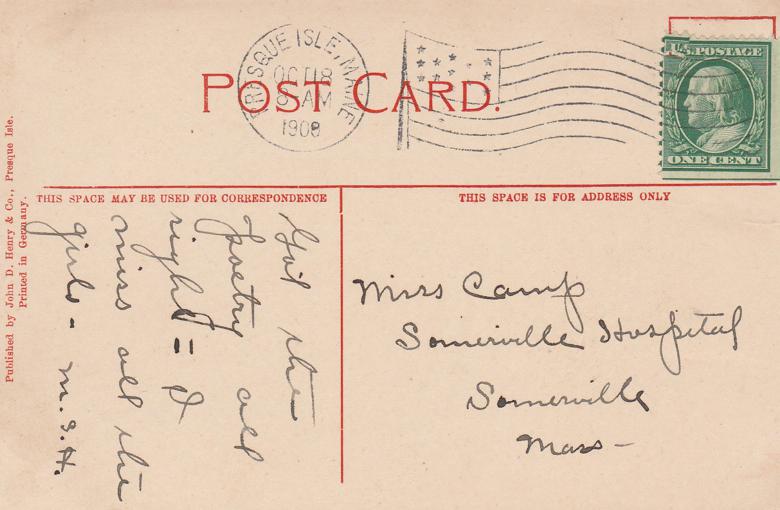 PRESQUE ISLE, MAINE
OCT 18
1908
POST CARD.
U.S. POSTAGE
ONE CENT
Published by John D. Henry & Co., Presque Isle.
Printed in Germany.
THIS SPACE MAY BE USED FOR CORRESPONDENCE
THIS SPACE IS FOR ADDRESS ONLY
Got the
poetry all
right = I
miss all the
girls - M.S.H.
Miss Camp
Somerville Hospital
Somerville
Mass -